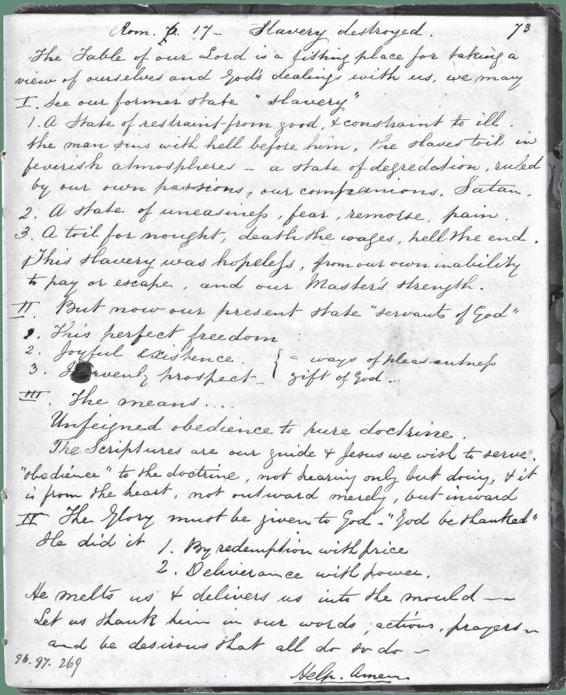 Rom. 6. 17 - Slavery destroyed. 73
The Table of our Lord is a fitting place for taking a
view of ourselves and God's dealings with us, we may
I. See our former state "slavery"
1. A State of restraint from good, & constraint to ill.
the man sins with hell before him, the slaves toil in
feverish atmosphere - a state of degredation, ruled
by our own passions, our companions, Satan.
2. A state of uneasiness, fear, remorse, pain.
3. A toil for nought, death the wages, hell the end.
This slavery was hopeless, from our own inability
to pay or escape, and our Master's strength.
II. But now our present state "servants of God"
1. This perfect freedom
2. Joyful existence. { = ways of pleasantness
3. Heavenly prospect - { gift of God...
III. The means....
Unfeigned obedience to pure doctrine.
The Scriptures are our guide & Jesus we wish to serve.
"obedience" to the doctrine, not hearing only but doing, & it
is from the heart, not outward merely, but inward
II The Glory must be given to God. "God be thanked"
He did it 1. By redemption with price
2. Deliverance with power.
He melts us & delivers us into the mould —
Let us thank him in our words, actions, prayers -
and be desirous that all do so do -
96. 97. 269
Help. Amen